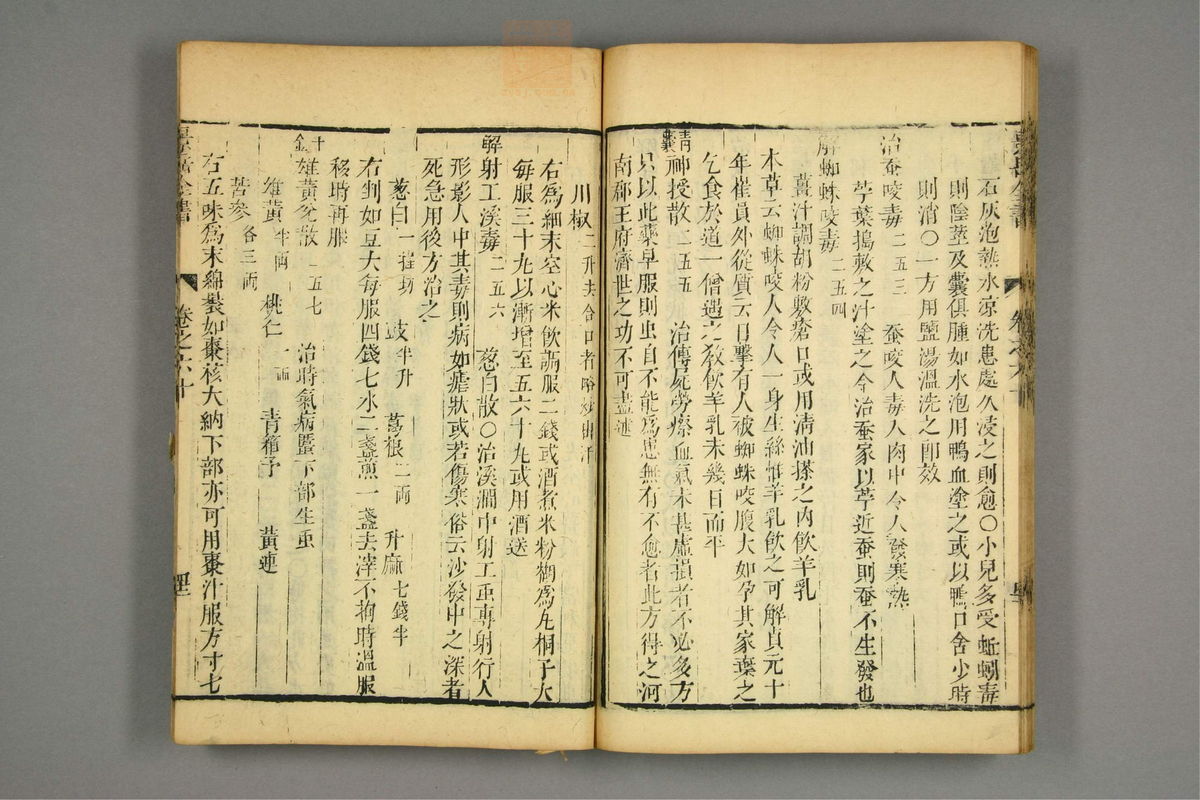 石灰泡熱水涼洗患處久浸之則愈○小兒多受蚯蚓毒
則陰莖及囊俱腫如水泡用鴨血塗之或以鴨口含少時
則消○一方用鹽湯溫洗之卽效
治蚕咬毒二五三 蚕咬人毒人肉中令人發寒熱
苧葉搗敷之汁塗之今治蚕家以苧近蚕則蚕不生發也
解蜘蛛咬毒二五四
薑汁調胡粉敷瘡口或用清油搽之內飲羊乳
本草云蜘蛛咬人令人一身生絲惟羊乳飲之可解貞元十
年崔員外從質云目擊有人被蜘蛛咬腹大如孕其家棄之
乞食於道一僧遇之敎飲羊乳未幾日而平
青囊神授散二五五 治傳屍勞瘵血氣未甚虛損者不必多方
只以此藥早服則虫自不能爲患無有不愈者此方得之河
南郡王府濟世之功不可盡述
川椒二升去合口者略炒出汗
右爲細末空心米飲調服二錢或酒煮米粉糊爲丸桐子大
每服三十九以漸增至五六十九或用酒送
解射工溪毒二五六 葱白散○治溪澗中射工虫專射行人
形影人中其毒則病如瘧狀或若傷寒俗云沙發中之深者
死急用後方治之
葱白一握切 豉半升 葛根二兩 升麻七錢半
右剉如豆大每服四錢七水二盞煎一盞去滓不拘時溫服
移時再服
雄黃兌散二五七 治時氣病䘌下部生虫
雄黃半兩 桃仁一兩 青箱子 黃連
苦參各三兩
右五味爲末綿裝如棗核大納下部亦可用棗汁服方寸七
景岳全書 卷之六十